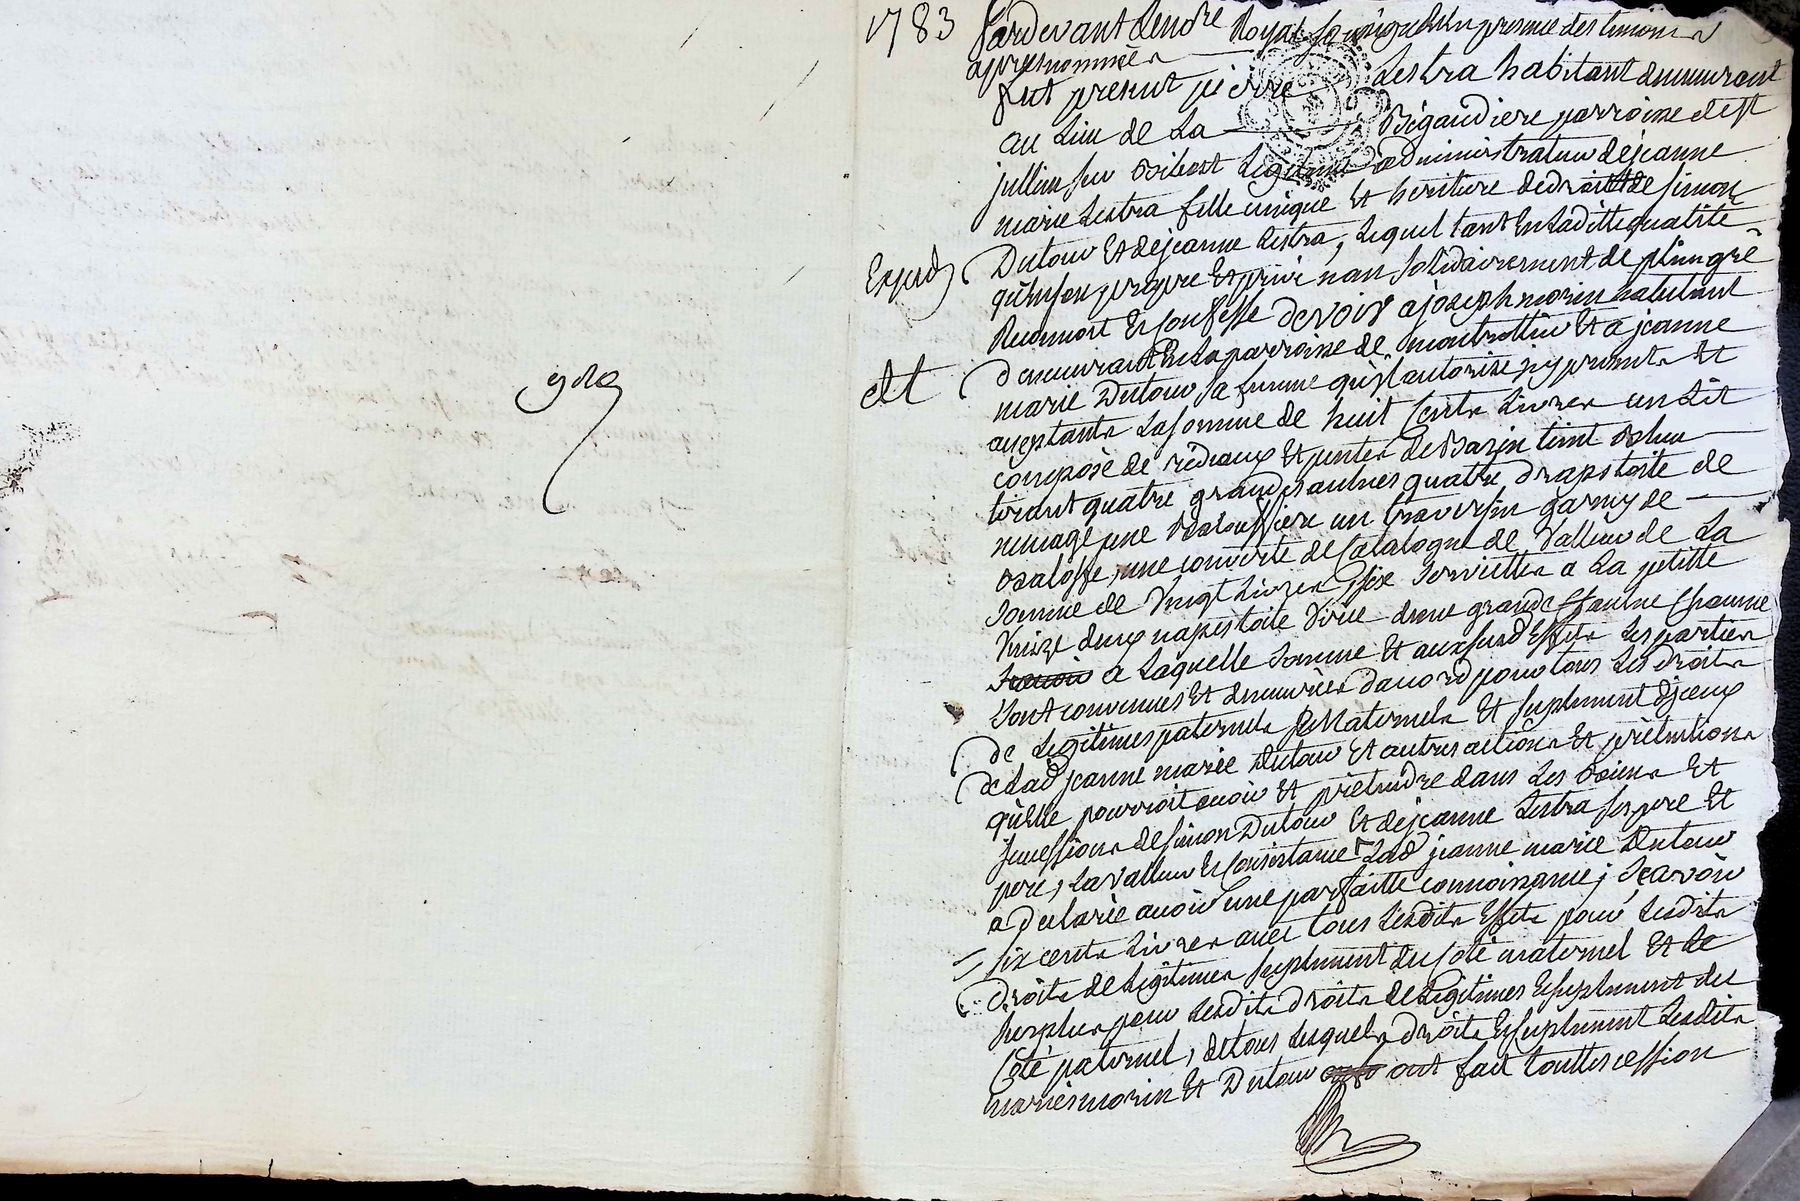 1783
Pardevant le no.re Royal soussigné et en presence des temoins
apres nommés
fut present pierre Lestra habitant demeurant
au lieu de La Bégaudiere parroisse de st
jullien sur bibost Legitime administrateur de jeanne
marie Lestra fille unique et heritiere de droit de simon
Dutour et de jeanne Lestra, Lequel tant en Laditte qualité
Exped
qu'en son propre et privé nom solidairement de plein gré
Reconnoit et confesse devoir a joseph morin habitant
ctt
demeurant en La parroisse de montrottier et a jeanne
marie Dutour sa femme qu'il autorise icy presents et
acceptants La somme de huit cents Livres un Lit
composé de rideaux et pentes de Bazin teint bleu
tirant quatre grandes aulnes quatre draps toile de
menage une baloufiere un traversin garny de
baloffe, une couverte de Catalogne de valleur de La
somme de vingt Livres six serviettes a La petitte
Venize deux napes toile Virée d'une grande aulne chacune
a Laquelle somme et auxsusd effets Les parties
sont convenues et demeurées d'accord pour tous Les droits
de Legitimes paternels et Maternels et suplement d'iceux
de Lad jeanne marie Dutour et autres actions et prétentions
qu'elle pourroit avoir et prétendre dans Les biens et
successions de simon Dutour et de jeanne Lestra ses pere et
mere, La valleur et Consistance Lad jeanne marie Dutour
a declarée avoir une parfaitte connoissance; sçavoir
six cents Livres avec tous Lesdits Effets pour Lesdits
droits de Legitimes suplement du Coté maternel et Le
surplus pour Lesdits droits de Legitimes et suplement du
Coté paternel, de tous Lesquels droits et suplement Lesdits
mariés morin et Dutour ont fait touttes cession